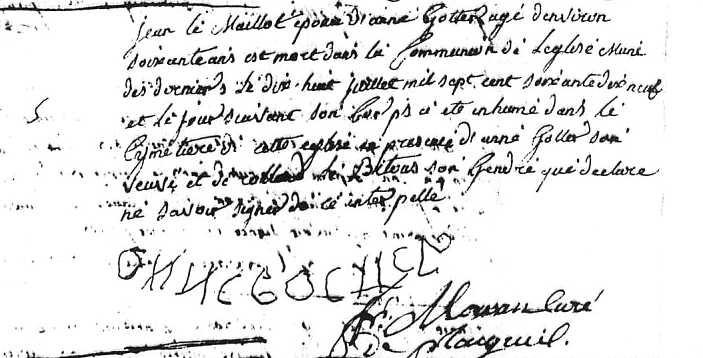 jean le Maillot epoux d'anne Gotter agé d'environ
soixante ans est mort dans la Communion de leglise muni
des derniers le dix huit juillet mil sept cent soixante dix neuf
et le jour suivant son Corps a eté inhumé dans le
Cymetiere de cette eglise en presence d'anne Gotter son
veuve et de le Bitous son Gendre que declare
ne savoir signer de ce interpellé
Mousan curé
de Plouguiel.